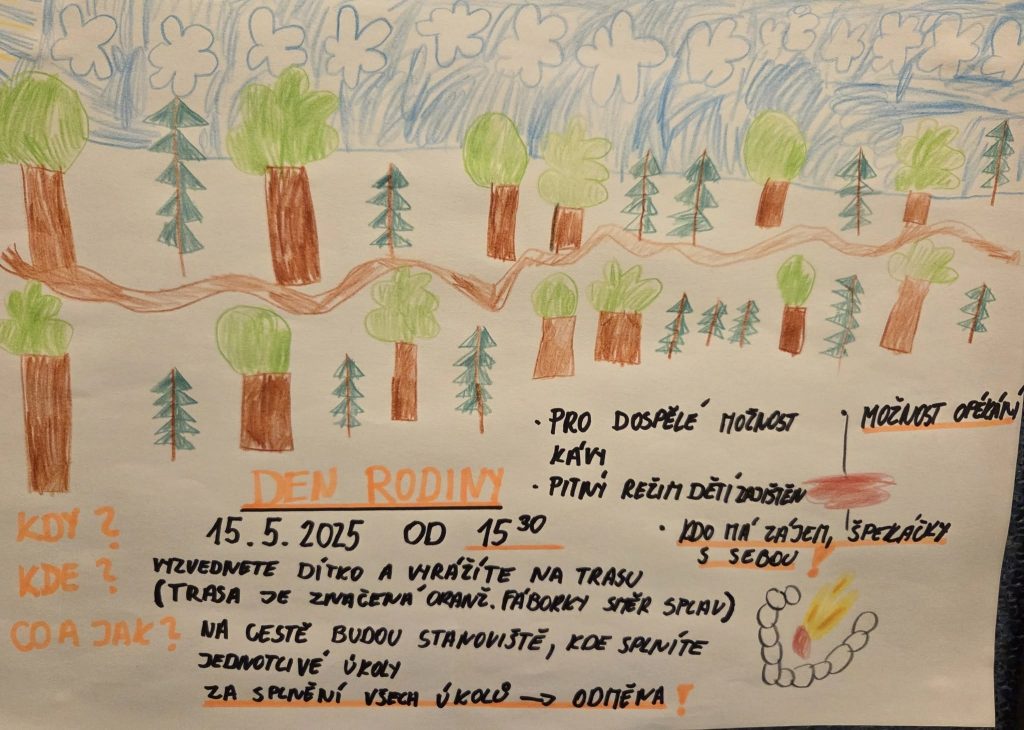 DEN RODINY
KDY? 15.5.2025 OD 15³⁰
KDE? VYZVEDNETE DÍTKO A VYRÁŽÍTE NA TRASU
(TRASA JE ZNAČENÁ ORANŽ. FÁBORKY SMĚR SPLAV)
CO A JAK? NA CESTĚ BUDOU STANOVIŠTĚ, KDE SPLNÍTE
JEDNOTLIVÉ ÚKOLY
ZA SPLNĚNÍ VŠECH ÚKOLŮ → ODMĚNA!
· PRO DOSPĚLÉ MOŽNOST
KÁVY
· PITNÝ REŽIM DĚTÍ ZAJIŠTĚN
· MOŽNOST OPÉKÁNÍ
· KDO MÁ ZÁJEM, ŠPEKÁČKY
S SEBOU!